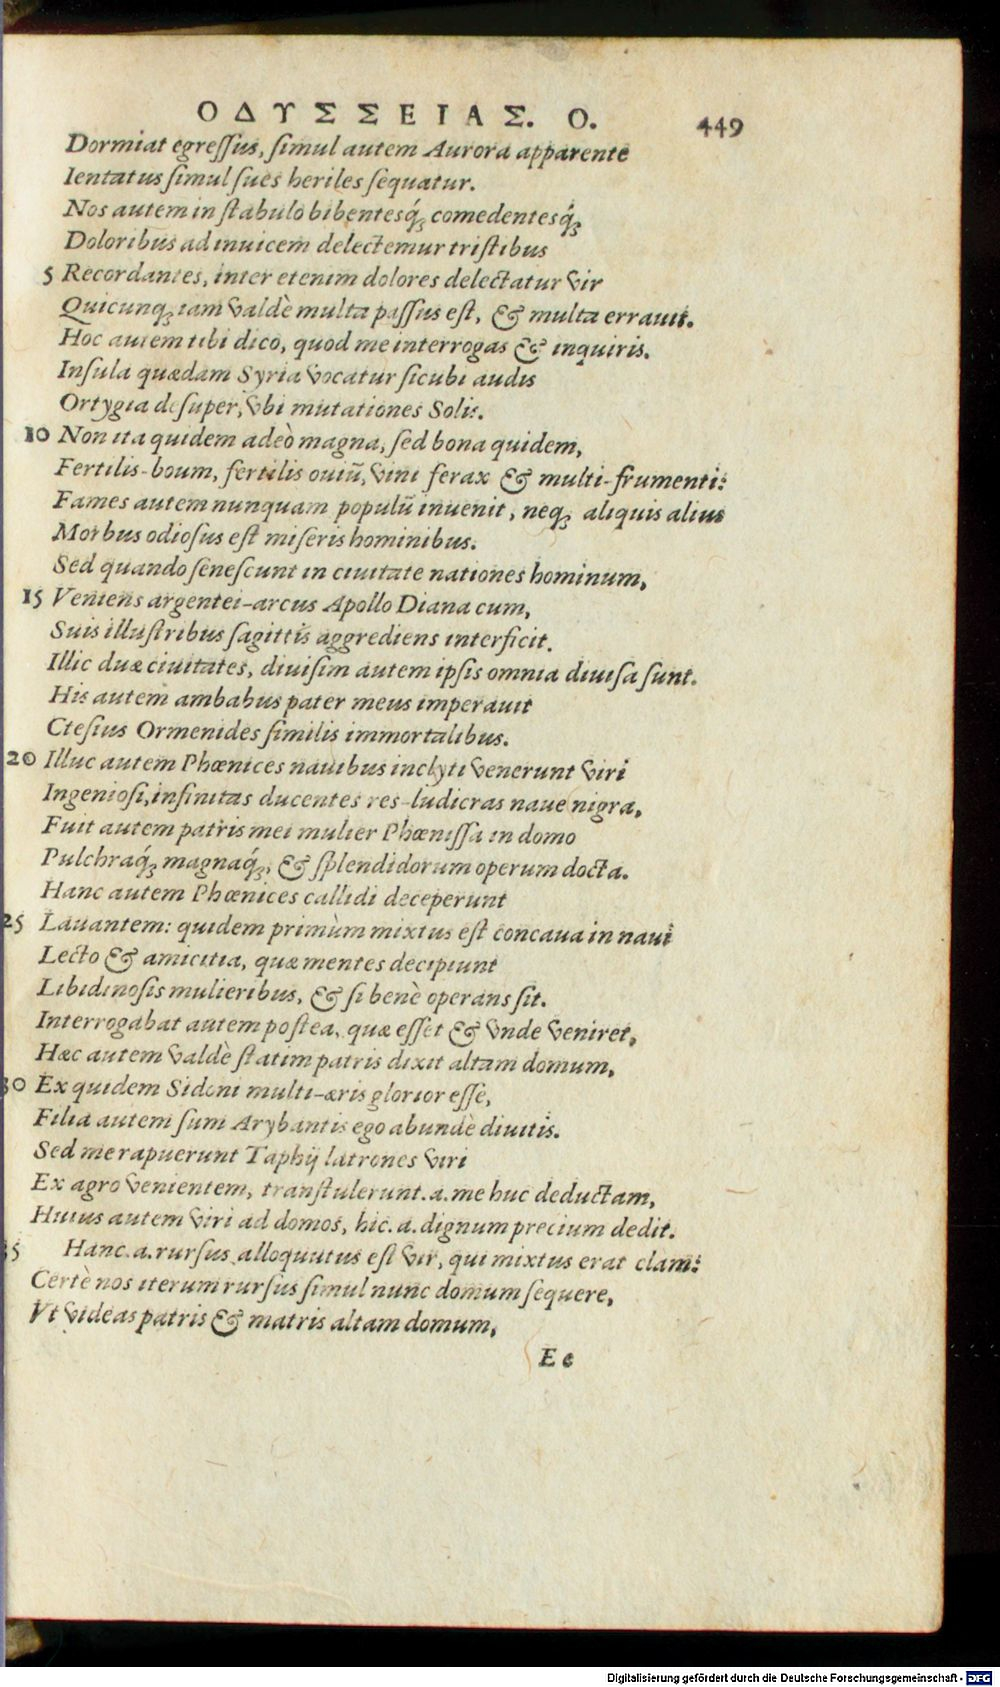 ΟΔΥΣΣΕΙΑΣ. Ο. 449
Dormiat egreſſus, ſimul autem Aurora apparente
Ientatus ſimul ſues heriles ſequatur.
Nos autem in ſtabulo bibentesq́ꝫ comedentesq́ꝫ
Doloribus ad inuicem delectemur triſtibus
5 Recordantes, inter etenim dolores delectatur vir
Quicunqꝫ iam valdè multa paſſus eſt, & multa errauit.
Hoc autem tibi dico, quod me interrogas & inquiris.
Inſula quædam Syria vocatur ſicubi audis
Ortygia deſuper, vbi mutationes Solis.
10 Non ita quidem adeò magna, ſed bona quidem,
Fertilis-boum, fertilis ouiũ, vini ferax & multi-frumenti:
Fames autem nunquam populũ inuenit, neqꝫ aliquis alius
Morbus odioſus eſt miſeris hominibus.
Sed quando ſeneſcunt in ciuitate nationes hominum,
15 Veniens argentei-arcus Apollo Diana cum,
Suis illuſtribus ſagittis aggrediens interficit.
Illic duæ ciuitates, diuiſim autem ipſis omnia diuiſa ſunt.
His autem ambabus pater meus imperauit
Cteſius Ormenides ſimilis immortalibus.
20 Illuc autem Phœnices nauibus inclyti venerunt viri
Ingenioſi, infinitas ducentes res-ludicras naue nigra,
Fuit autem patris mei mulier Phœniſſa in domo
Pulchraq́ꝫ magnaq́ꝫ, & ſplendidorum operum docta.
Hanc autem Phœnices callidi deceperunt
25 Lauantem: quidem primùm mixtus eſt concaua in naui
Lecto & amicitia, quæ mentes decipiunt
Libidinoſis mulieribus, & ſi benè operans ſit.
Interrogabat autem poſtea, quæ eſſet & vnde veniret,
Hæc autem valdè ſtatim patris dixit altam domum,
30 Ex quidem Sidoni multi-æris glorior eſſe,
Filia autem ſum Arybantis ego abundè diuitis.
Sed me rapuerunt Taphij latrones viri
Ex agro venientem, tranſtulerunt. a. me huc deductam,
Huius autem viri ad domos, hic. a. dignum precium dedit.
35 Hanc. a. rurſus alloquutus eſt vir, qui mixtus erat clam:
Certè nos iterum rurſus ſimul nunc domum ſequere,
Vt videas patris & matris altam domum,
Ee
Digitalisierung gefördert durch die Deutsche Forschungsgemeinschaft - DFG